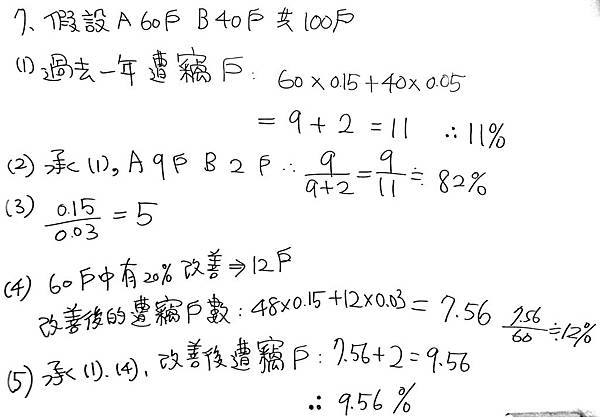 7、假設 A 60戶 B 40戶 共 100戶
(1) 過去一年遭竊戶: 60×0.15+40×0.05
= 9+2 = 11 ∴ 11%
(2) 承(1), A 9戶 B 2戶 ∴ 9/(9+2) = 9/11 ≒ 82%
(3) 0.15/0.03 = 5
(4) 60戶中有20%改善⇒12戶
改善後的遭竊戶數: 48×0.15+12×0.03 = 7.56 7.56/60 ≒12%
(5) 承(1).(4), 改善後遭竊戶: 7.56+2=9.56
∴ 9.56%